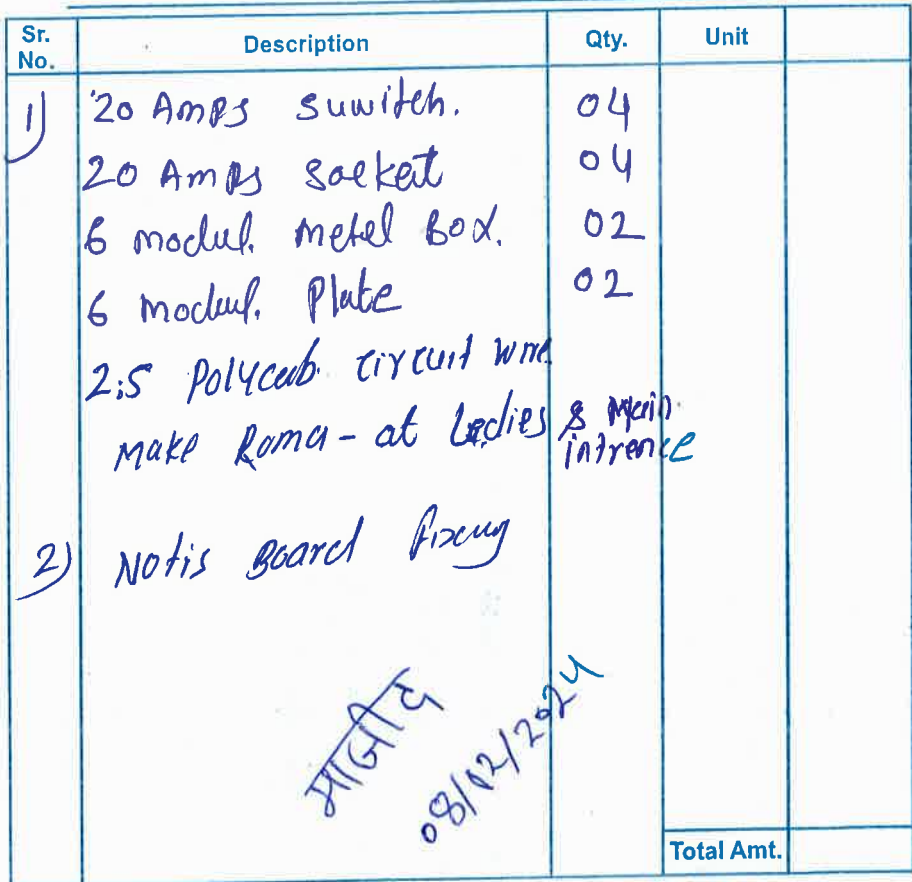 Sr. No. Description Qty. Unit
1) 20 Amps suwitch. 04
20 Amps socket 04
6 modul. metel Box. 02
6 modul. Plate 02
2.5 Polycab circuit wire
make Roma - at Ledies & Main
intrence
2) Notis Board fixing
माजीद
08/02/2024
Total Amt.